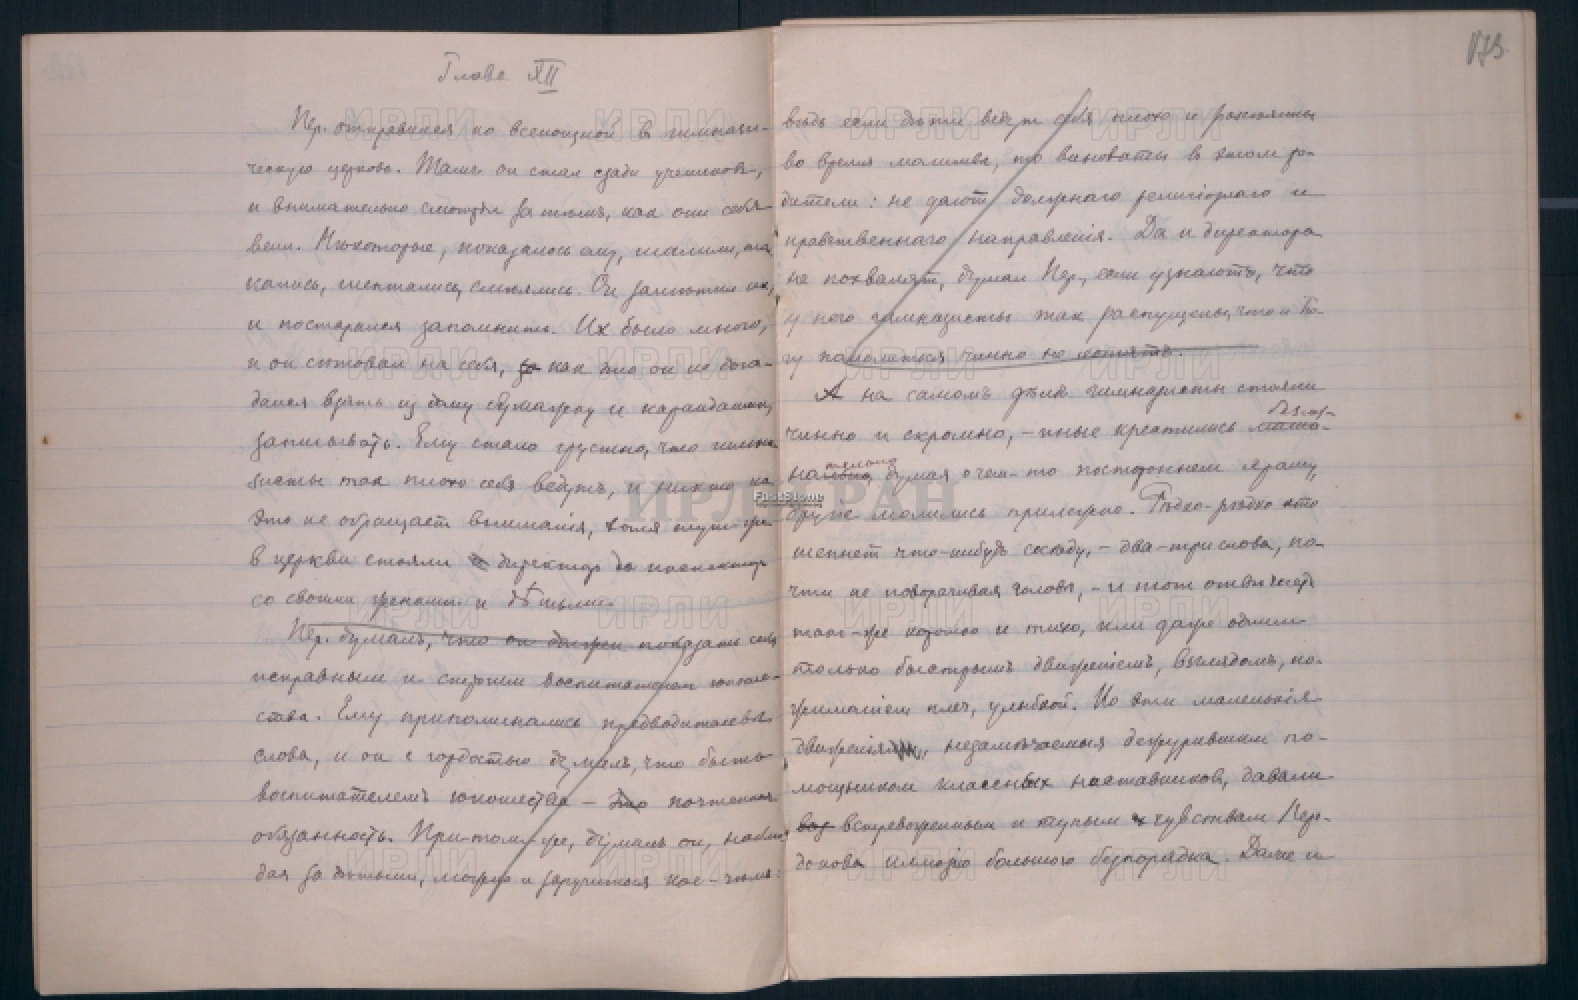 Глава XII
Пер. отправился ко всенощной в гимнази-
ческую церковь. Там он стал сзади учеников,
и внимательно смотрел за тѣмъ, как они себя
вели. Нѣкоторые, показалось ему, шалили, тол
кались, шептались, смѣялись. Он замѣтил их,
и постарался запомнить. Их было много,
и он сѣтовал на себя, как это он не дога-
дался взять из дому бумажку и карандашик,
записывать. Ему стало грустно, что гимна
зисты так плохо себя ведутъ, и никто на
это не обращает вниманія, хотя тут-же
в церкви стояли директор да инспектор
со своими женами и дѣтьми.
Пер. думалъ, что он должен показать себя
исправным и строгим воспитателем юноше-
ства. Ему припоминались предводителевы
слова, и он с гордостью думалъ, что быть
воспитателемъ юношества – это почтенная
обязанность. При-том-же, думалъ он, наблю
дая за дѣтьми, можно и заручиться кое-чѣмъ:
173
вѣдь если дѣти ведут себя плохо и
во время молитвы, то виноваты в этом ро-
дители: не дают должнаго религіознаго и
нравственнаго направленія. Да и директора
не похвалят, думал Пер., если узнаютъ, что
у него гимназисты так распущены, что и Бо-
гу помолиться чинно не могутъ.
А на самомъ дѣлѣ гимназисты стояли
чинно и скромно, – иные крестились безсоз-
нательно, думая о чем-то постороннем храму,
другіе молились прилежно. Рѣдко-рѣдко кто
шепнет что-нибудь сосѣду, – два-три слова, по-
чти не поворачивая головы, – и тот отвѣчает
так-же коротко и тихо, или даже одним
только быстрымъ движеніемъ, взглядомъ, по-
жиманіем плеч, улыбкой. Но эти маленькія
движенія, незамѣчаемыя дежурившим по-
мощником классных наставников, давали
встревоженным и тупым чувствам Пер-
донова иллюзію большого безпорядка. Даже и
ИРЛИ РАН
FastStone